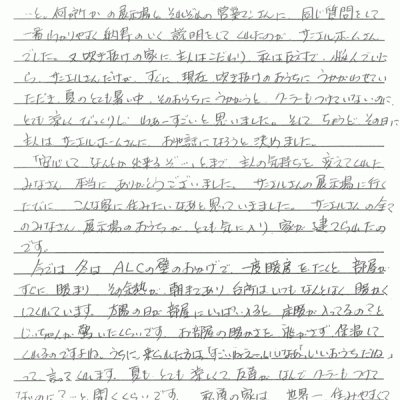 …と。何ヶ所かの展示場で、それぞれの営業マンさんに、同じ質問をして
一番わかりやすく納得のいく説明をしてくれたのが、サンエルホームさん
でした。又吹き抜けの家に主人はこだわり、私は反対で、悩んでいた
ら、サンエルさんだけが、すぐに、現在吹き抜けのおうちにうかがわせてい
ただき、夏のとても暑い中、そのおうちにうかがうと、クーラーもつけていないのに、
とても涼しくびっくりし、わぁーすごいと思いました。そして、ちょうどその日に
主人はサンエルホームさんに、お世話になろうと決めました。
「安心して、なんとか出来るぞ…」とまで、主人の気持ちを変えてくれた
みなさん 本当に ありがとうございました。サンエルさんの展示場に行く
たびに こんな家に住みたいなあと思っていきました。サンエルさんの全て
のみなさん、展示場のおうちが、とても気に入り、家が建てられたの
です。
今では 冬はALCの壁のおかげで、一度暖房をたくと、部屋が
すぐに暖まり、その余熱が朝まであり、台所はいつもなんとなく暖かく
してくれています。太陽の日が部屋にいっぱい入ると 床暖が入ってるの?と
じいちゃんが驚いたくらいです。お部屋の暖かさを逃がさず、保温して
くれるのですよね。うちに来られた方は「すごいねえー、いいなあ」「いいおうちだね」
って、言ってくれます。夏もとても涼しくて 友達が なんで クーラーもつけて
ないのに?…と聞くくらいです。 我家の家は 世界一 住みやすくて